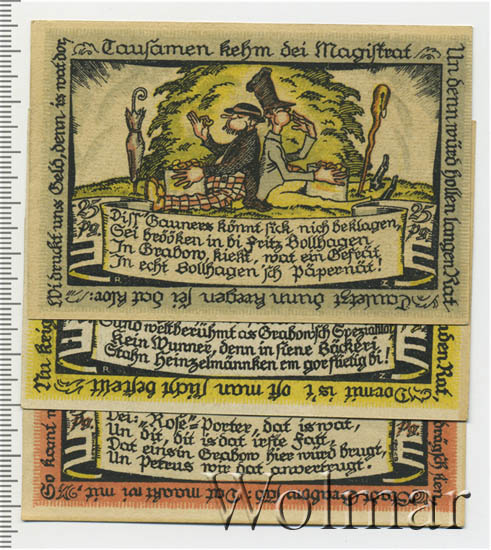 Tausamen kehm dei Magistrat
Un denn würd hollen langen Rat
Tauletzt dunn kregen sei dat klor:
Wi drukt uns Geld, denn is wat dor
25 Pg.
25 Pg.
Diss' Gauners könnt sick nich beklagen,
Sei bröoken in bi Fritz Bollhagen
In Grabow, kiekt, wat ein Gesicht
In echt Bollhagen'sch Päpernät!
R Z
Sünd weltberühmt as Grabow'sch Spezialität
Kein Wunner, denn in siene Bäckeri
Stahn Heinzelmännken em gor flietig bi!
R Z
Pg.
Pg.
Dei: „Rose"-Porter, dat is wat,
Un dit, dit is dat irste Fatt,
Dat eins in Grabow hier würd brugt,
Un Petrus wir dat anvertrugt.
R Z
So kamt
Wolmar